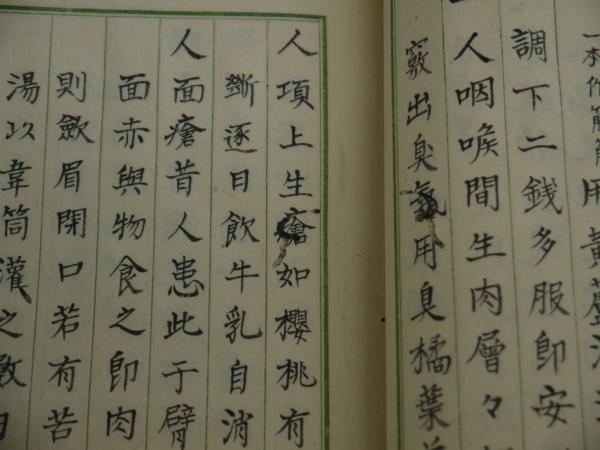 一本作筋
用黃
調下二錢多服卽安
一人咽喉間生肉層々
竅出臭氣用臭橘葉
人項上生瘡如櫻桃有
斷逐日飲牛乳自消
人面瘡昔人患此于臂
面赤與物食之卽肉
則歛眉閉口若有苦
湯以葦筒灌之數日